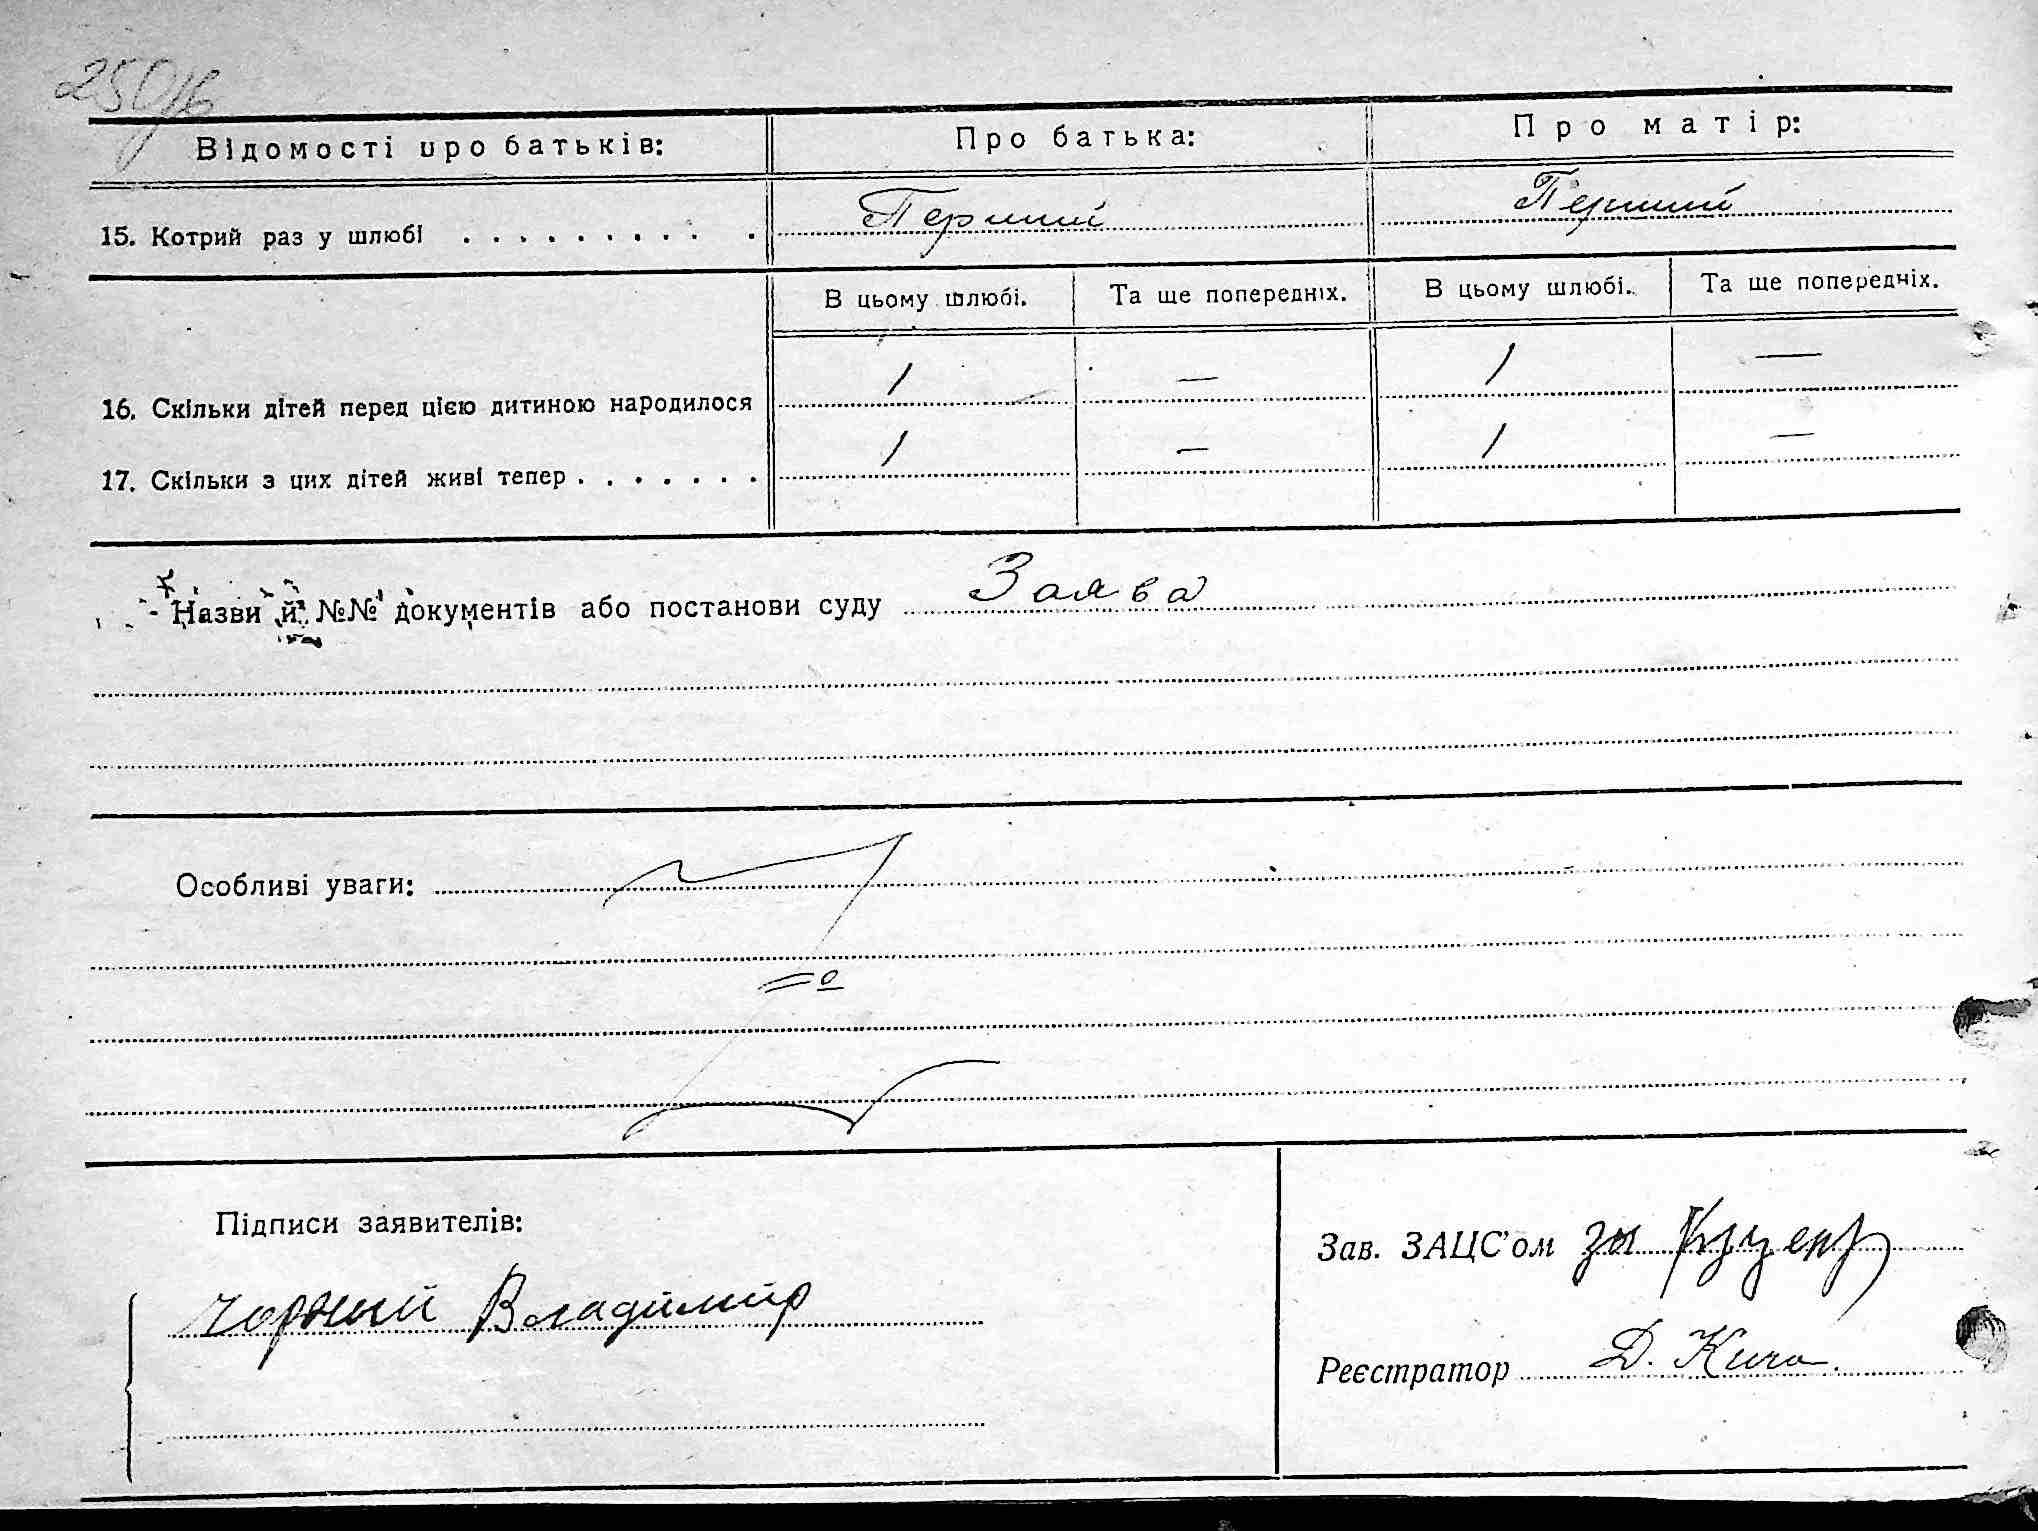 250/б
Відомості про батьків: Про батька: Про матір:
15. Котрий раз у шлюбі . . . . . . . . . . Перший Перший
В цьому шлюбі. Та ще попередніх. В цьому шлюбі. Та ще попередніх.
16. Скільки дітей перед цією дитиною народилося 1 — 1 —
17. Скільки з цих дітей живі тепер . . . . . . . 1 — 1 —
Назви й №№ документів або постанови суду Заява
Особливі уваги:
Підписи заявителів:
Зав. ЗАЦС'ом
Чорный Владимир
Реєстратор Д.